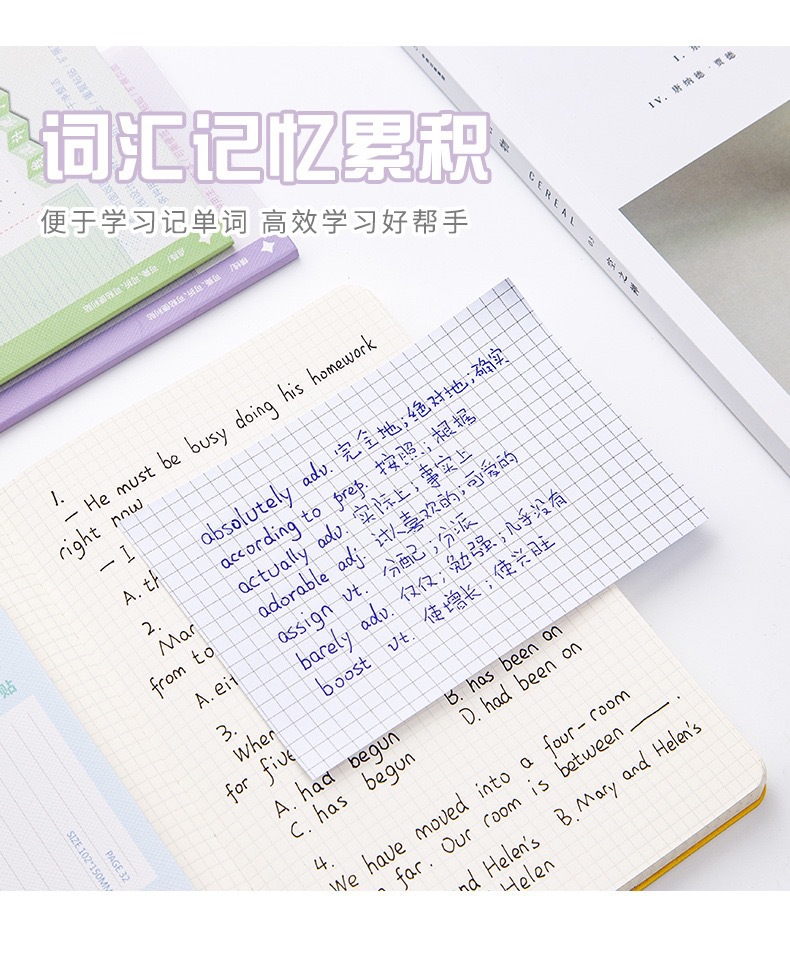 词汇记忆累积
便于学习记单词 高效学习好帮手
IV. 康纳德·贾德
CEREAL
absolutely adv. 完全地；绝对地；确实
according to prep. 按照；根据
actually adv. 实际上；事实上
adorable adj. 讨人喜欢的；可爱的
assign vt. 分配；分派
barely adv. 仅仅；勉强；几乎没有
boost vt. 使增长；使兴旺
1.
— He must be busy doing his homework
right now
— I
A. th
2.
Mar
from to
A. eit
3.
When
for five
B. has been on
A. had begun
D. had been on
C. has begun
4.
We have moved into a four-room
far. Our room is between ____.
nd Helen's B. Mary and Helen's
Helen
贴
PAGE 32
SIZE 102*150MM